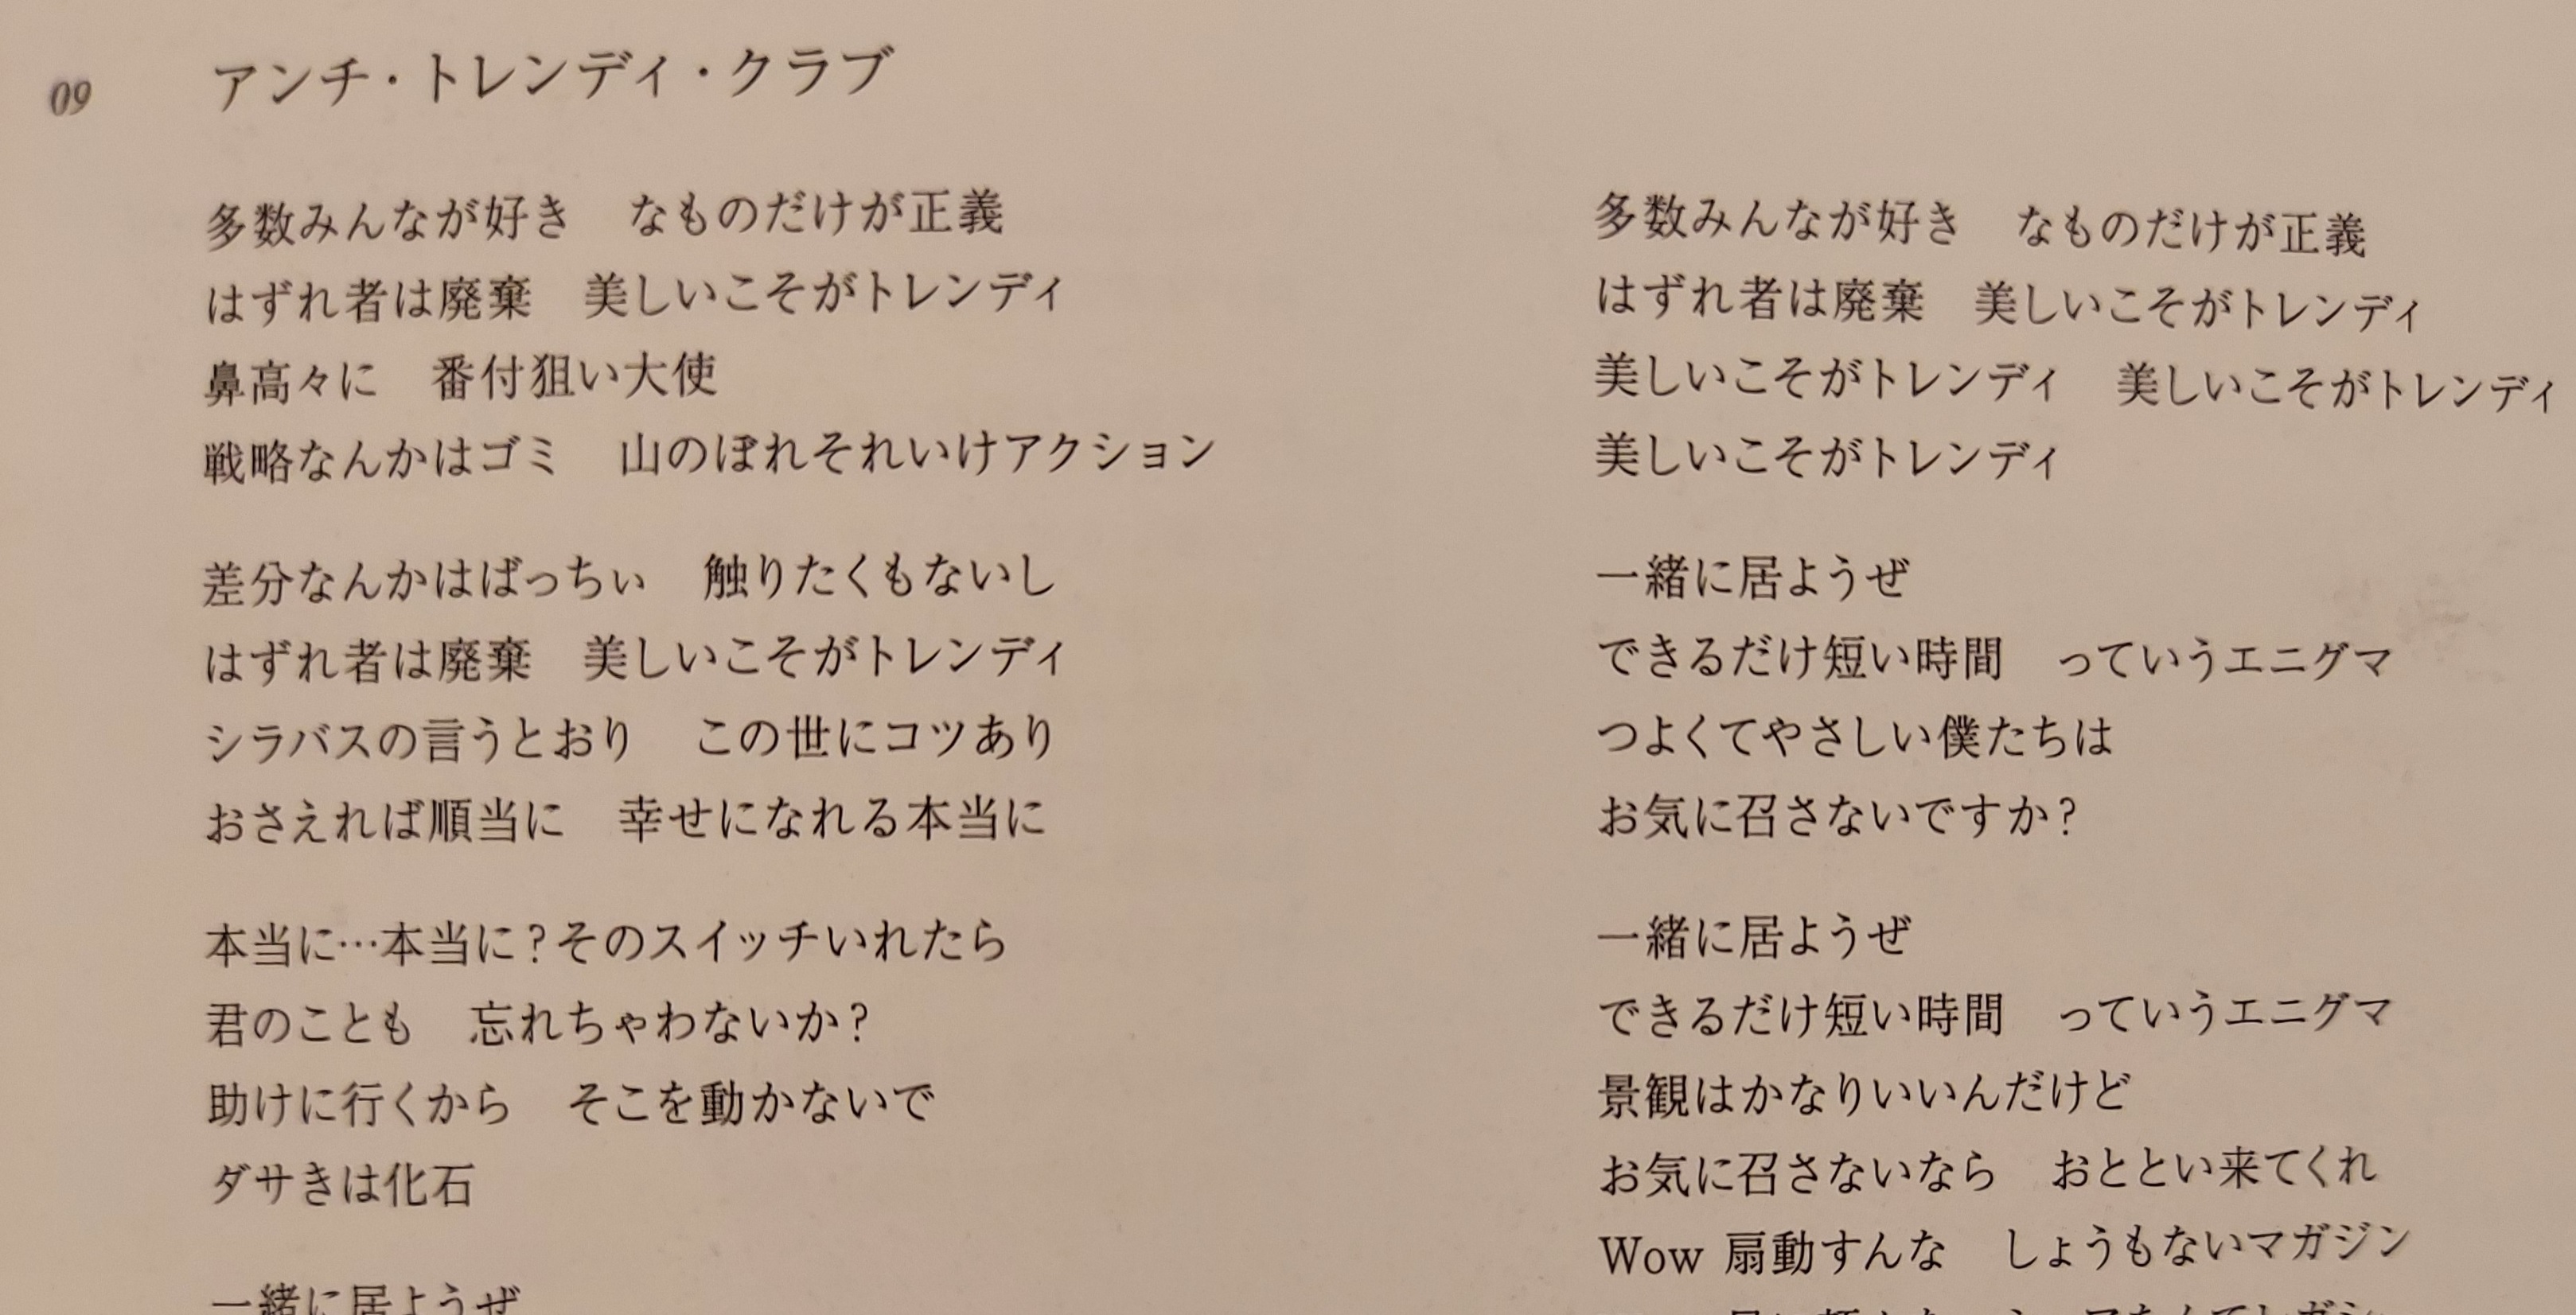 09 アンチ・トレンディ・クラブ
多数みんなが好き　なものだけが正義
はずれ者は廃棄　美しいこそがトレンディ
鼻高々に　番付狙い大使
戦略なんかはゴミ　山のぼれそれいけアクション
差分なんかはばっちぃ　触りたくもないし
はずれ者は廃棄　美しいこそがトレンディ
シラバスの言うとおり　この世にコツあり
おさえれば順当に　幸せになれる本当に
本当に…本当に？そのスイッチいれたら
君のことも　忘れちゃわないか？
助けに行くから　そこを動かないで
ダサきは化石
一緒に居ようぜ
多数みんなが好き　なものだけが正義
はずれ者は廃棄　美しいこそがトレンディ
美しいこそがトレンディ　美しいこそがトレンディ
美しいこそがトレンディ
一緒に居ようぜ
できるだけ短い時間　っていうエニグマ
つよくてやさしい僕たちは
お気に召さないですか？
一緒に居ようぜ
できるだけ短い時間　っていうエニグマ
景観はかなりいいんだけど
お気に召さないなら　おととい来てくれ
Wow 扇動すんな　しょうもないマガジン